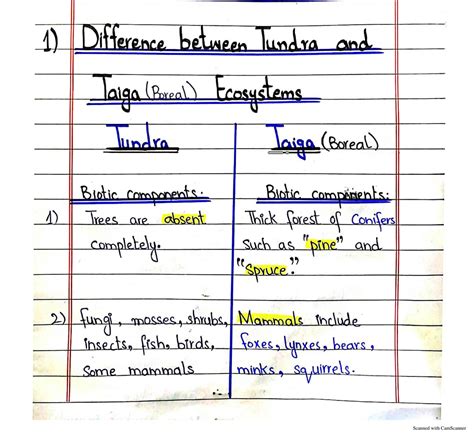 1) Difference between Tundra and
Taiga (Boreal) Ecosystems
Tundra
Taiga (Boreal)
Biotic components:
1) Trees are absent
completely.
Biotic components:
Thick forest of Conifers
such as "pine" and
"Spruce."
2) fungi, mosses, shrubs,
insects, fish, birds,
some mammals
Mammals include
foxes, lynxes, bears,
minks, squirrels.
Scanned with CamScanner